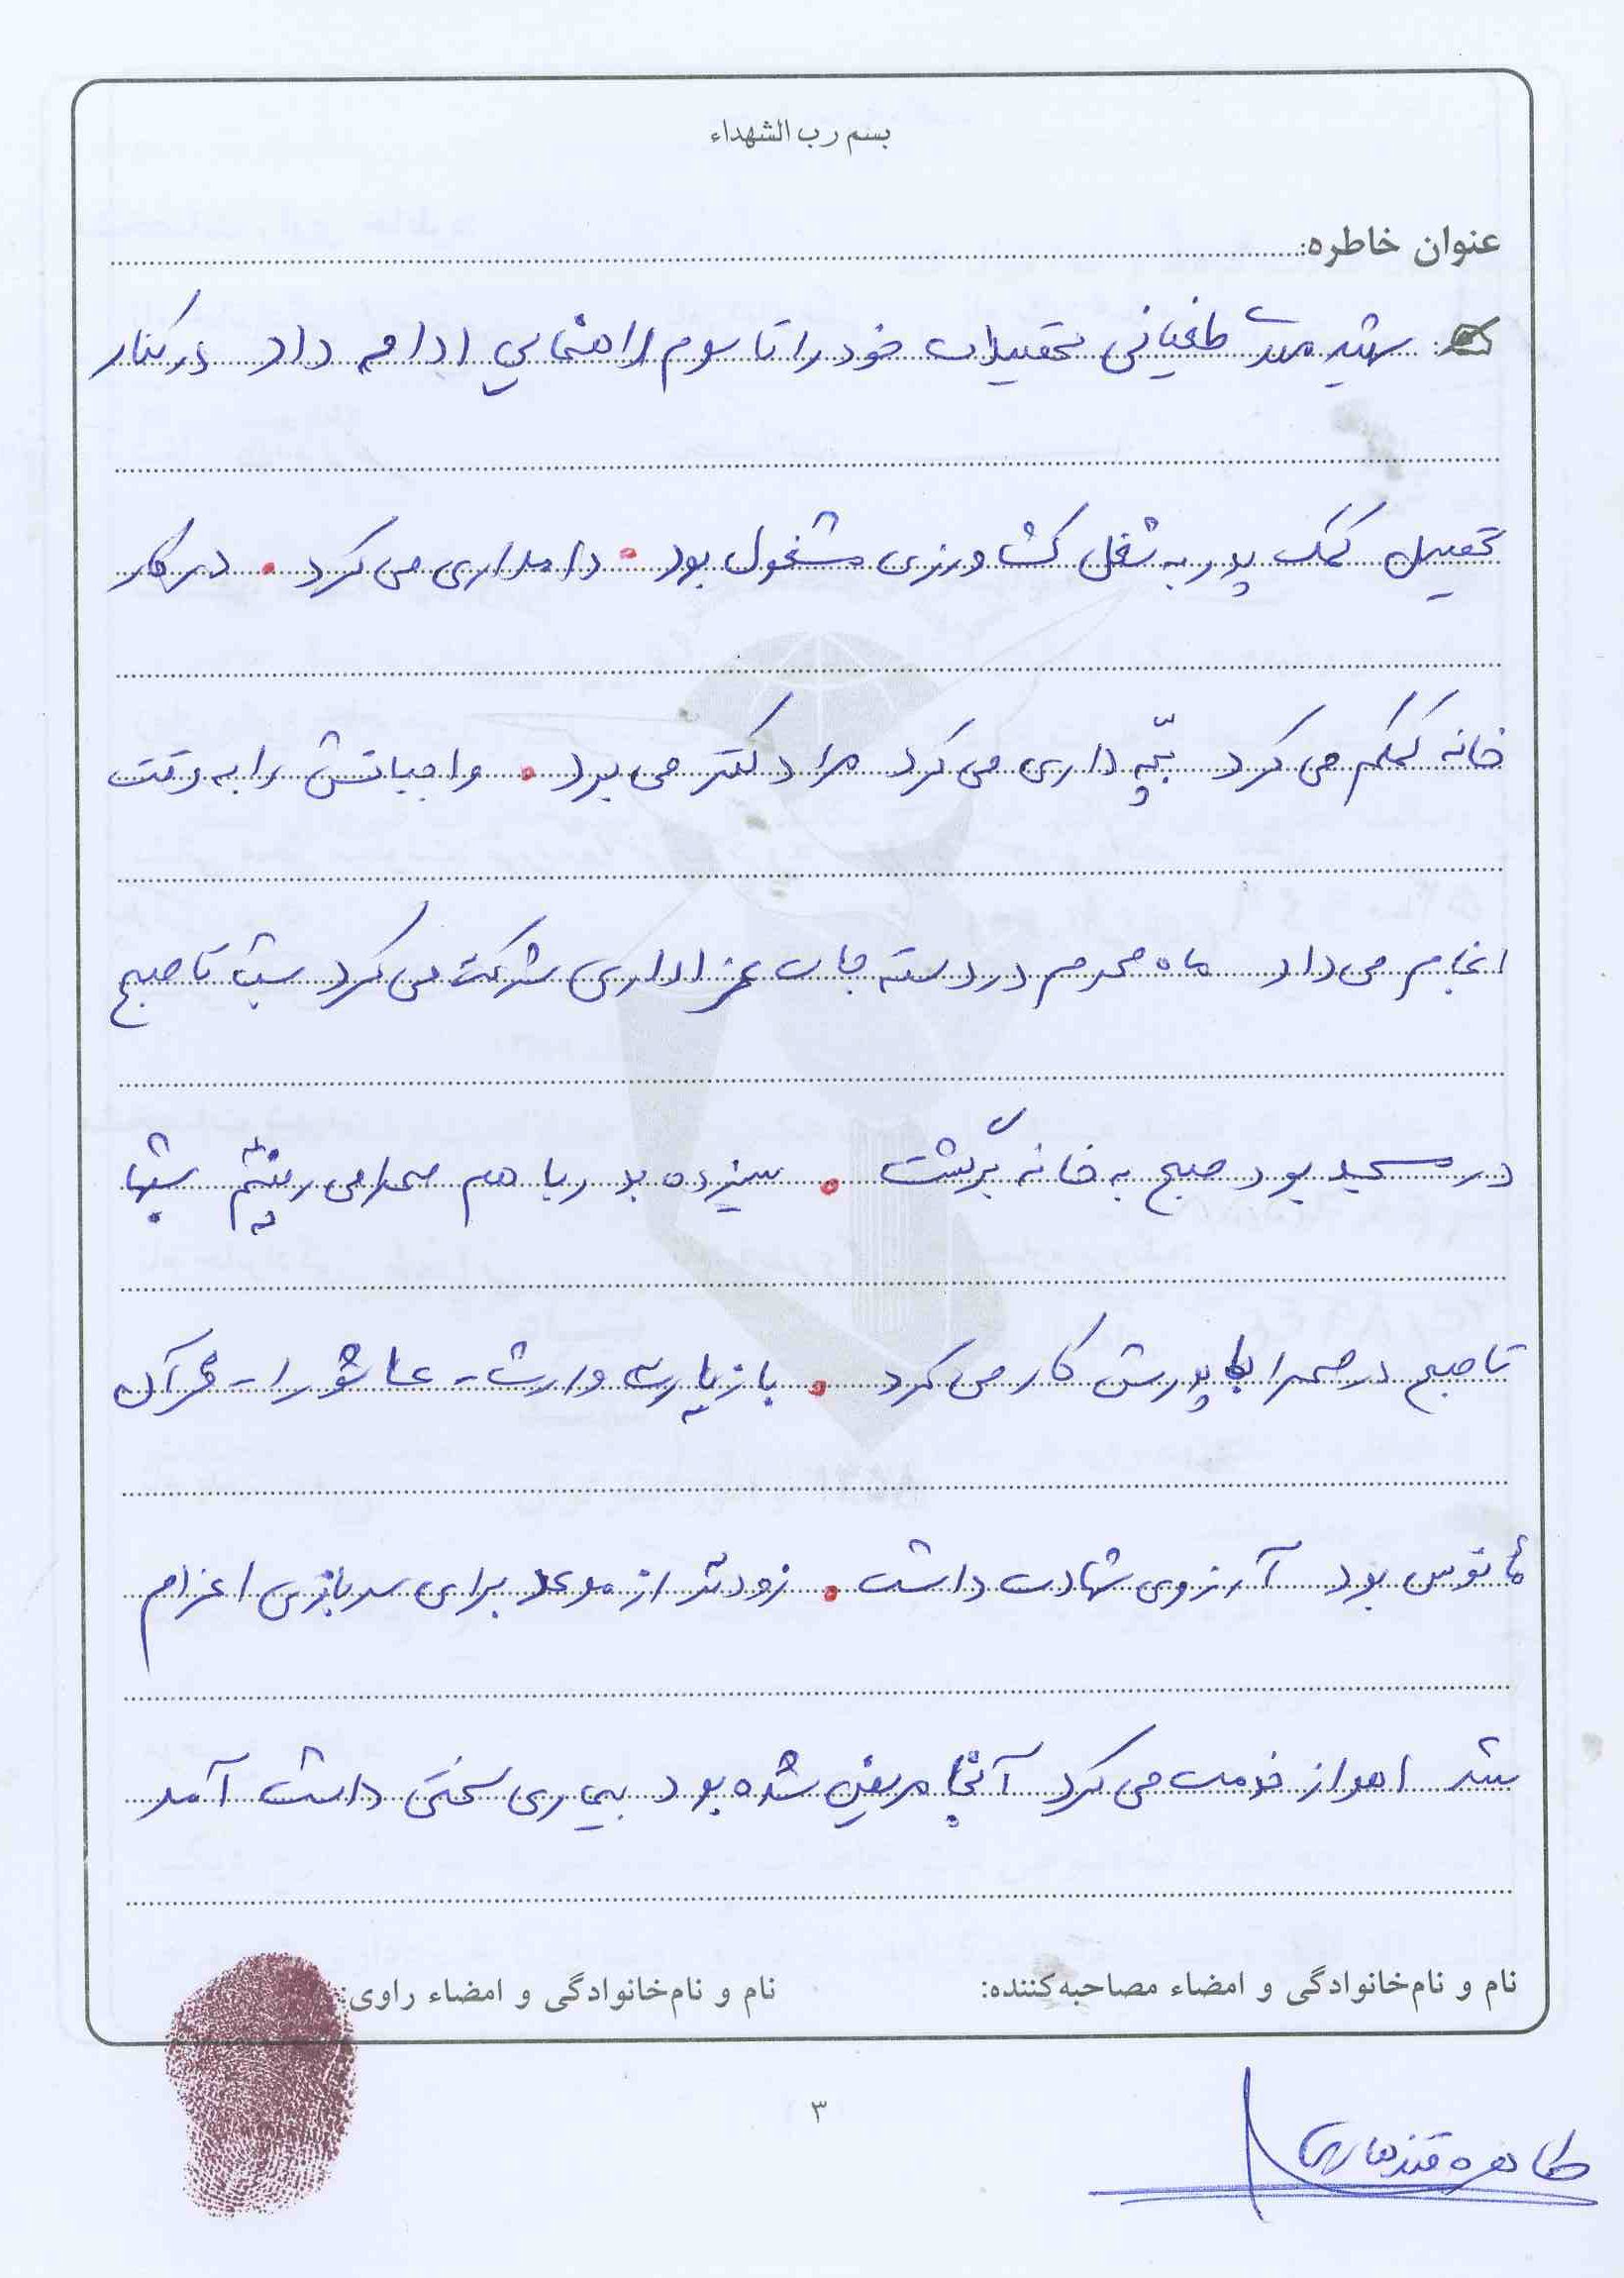 بسم رب الشهداء
عنوان خاطره:
شهید مهدی طغیانی تحصیلات خود را تا سوم راهنمایی ادامه داد در کنار
تحصیل کمک پدر به شغل کشاورزی مشغول بود. دامداری می کرد. در کار
خانه کمکم می کرد بچّه داری می کرد مرا دکتر می برد. واجباتش را به وقت
انجام می داد ماه محرم در دسته جات عزاداری شرکت می کرد شب تا صبح
در مسجد بود صبح به خانه برگشت. سیزده بدر با هم صحرا می رفتیم شبها
تا صبح در صحرا با پدرش کار می کرد. با زیارت وارث - عاشورا - قرآن
مأنوس بود آرزوی شهادت داشت. زودتر از موعد برای سربازی اعزام
شد اهواز خدمت می کرد آنجا مریض شده بود بیماری سختی داشت آمد
نام و نام‌خانوادگی و امضاء مصاحبه‌کننده: نام و نام‌خانوادگی و امضاء راوی:
۳
طاهره قندهاری